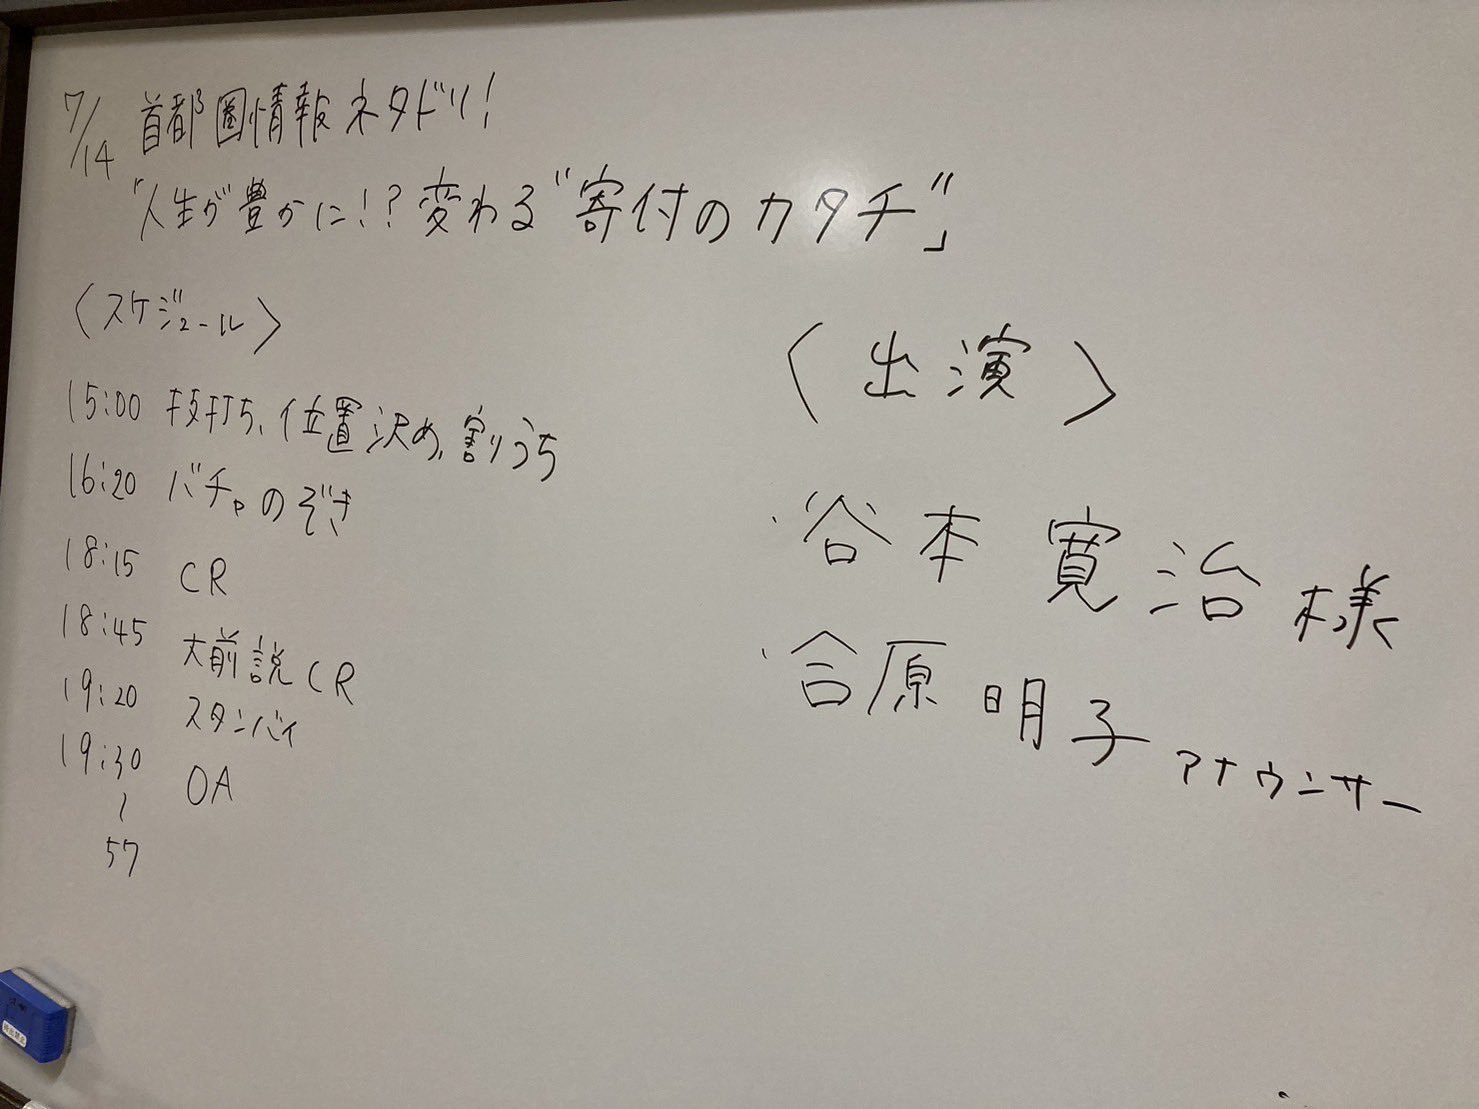 7/14 首都圏情報ネタドリ!
「人生が豊かに!?変わる"寄付のカタチ"」
〈スケジュール〉
15:00 技打ち、位置決め、割りうち
16:20 バチャのぞき
18:15 CR
18:45 大前説CR
19:20 スタンバイ
19:30 OA
〜
57
〈出演〉
・谷本 寛治様
・合原 明子アナウンサー